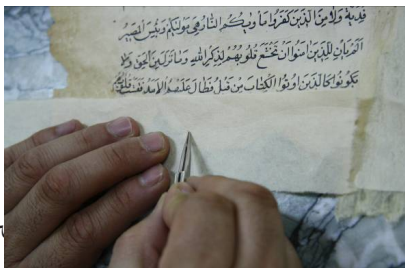 فدية ولا من الذين كفروا مأويكم النار هي موليكم وبئس المصير
الم يأن للذين امنوا ان تخشع قلوبهم لذكر الله وما نزل من الحق ولا
يكونوا كالذين اوتوا الكتاب من قبل فطال عليهم الامد فقست